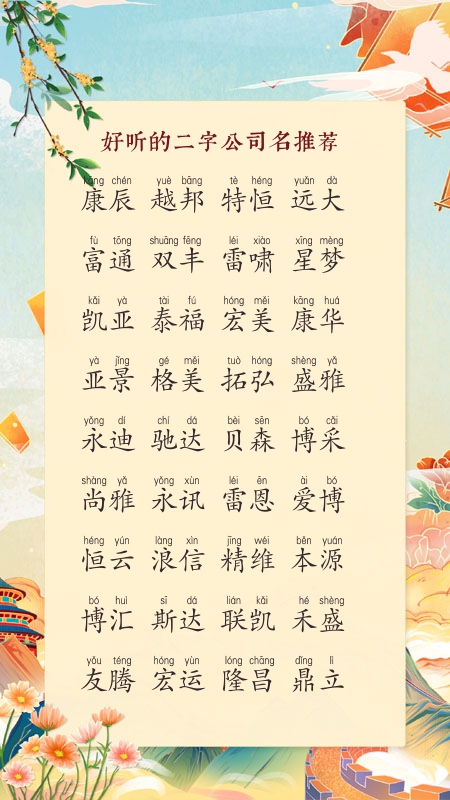 好听的二字公司名推荐
kāng chén yuè bāng tè héng yuǎn dà
康辰 越邦 特恒 远大
fù tōng shuāng fēng léi xiào xīng mèng
富通 双丰 雷啸 星梦
kǎi yà tài fú hóng měi kāng huá
凯亚 泰福 宏美 康华
yà jǐng gé měi tuò hóng shèng yǎ
亚景 格美 拓弘 盛雅
yǒng dí chí dá bèi sēn bó cǎi
永迪 驰达 贝森 博采
shàng yǎ yǒng xùn léi ēn ài bó
尚雅 永讯 雷恩 爱博
héng yún làng xìn jīng wéi běn yuán
恒云 浪信 精维 本源
bó huì sī dá lián kǎi hé shèng
博汇 斯达 联凯 禾盛
yǒu téng hóng yùn lóng chāng dǐng lì
友腾 宏运 隆昌 鼎立